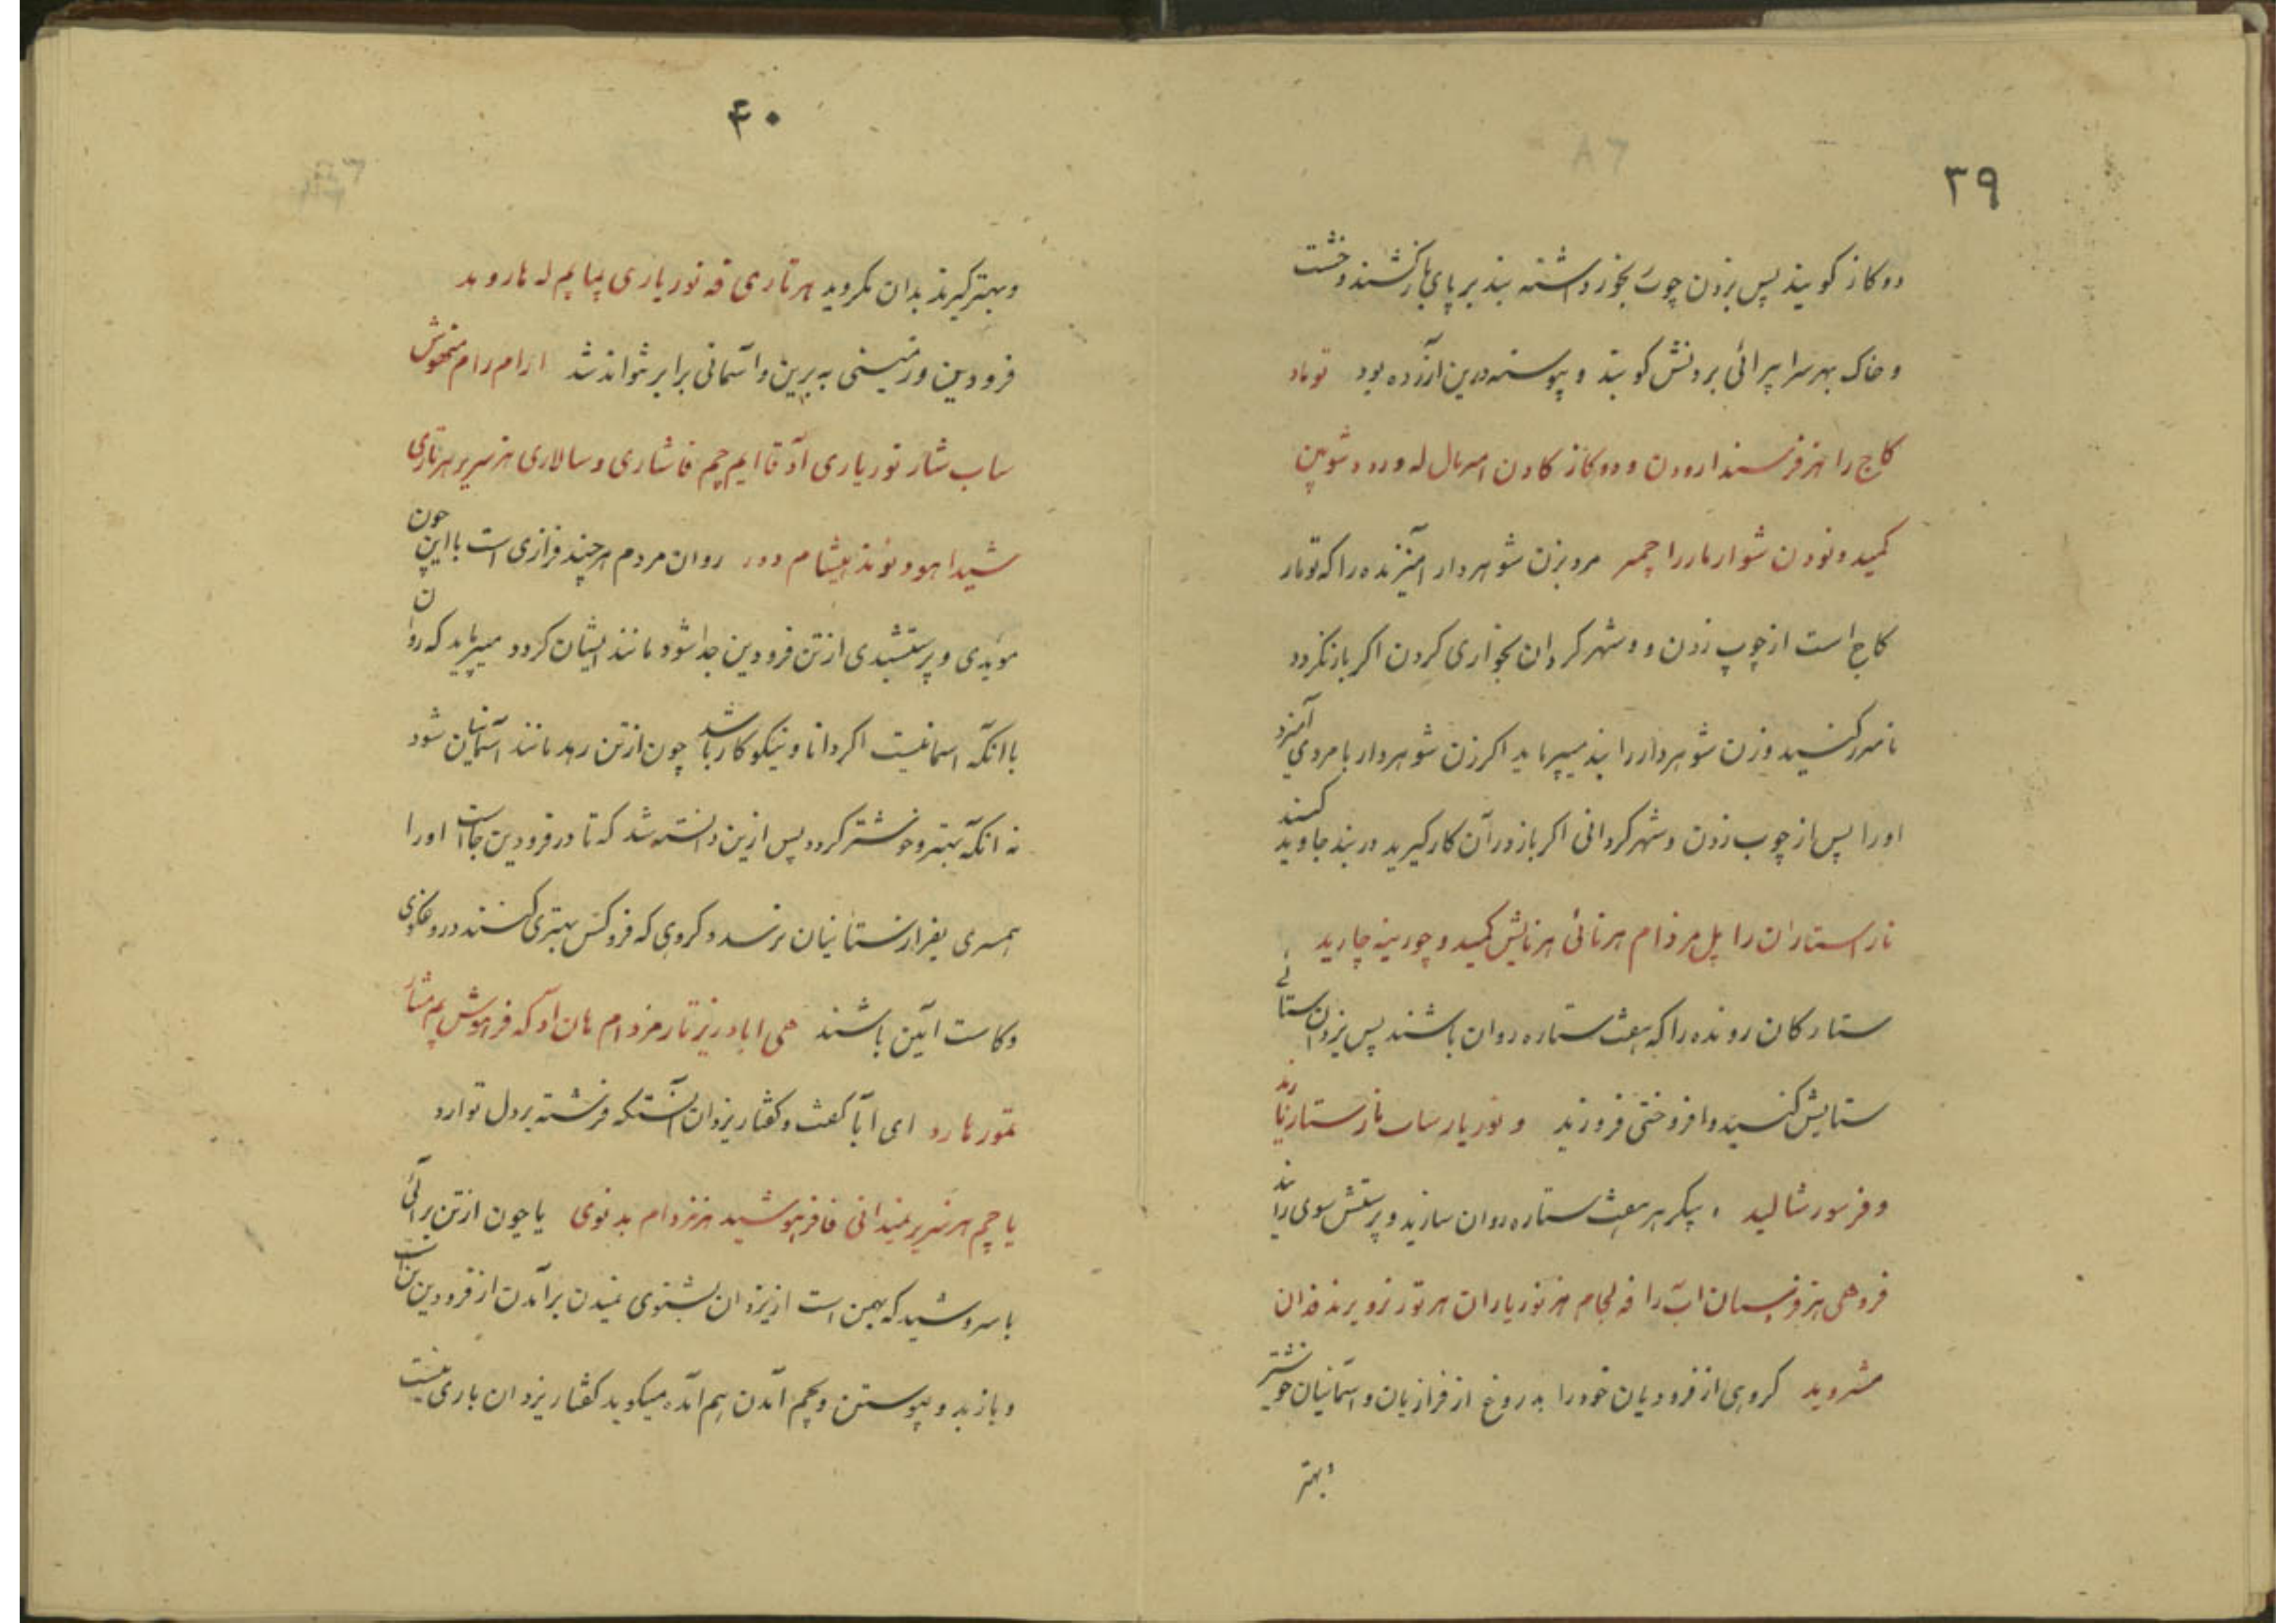 ۳۹
دو کاز کویند پس بزدن چوب بخوز داشته بند بر پای بار کشند و خشت
و خاک بهر سرا پیرائی بر دنش کوبند و پیوسته درین آزرده بود توماد
کاج را هنز فرسندارودن و دو کاز کادن امربال له ورد و شوین
کمید و نودن شوار مار را چمر مرد بزن شوهردار امیزنده را که تومار
کاج است از چوپ زدن و و شهر کردان بخواری کردن اکر باز نکردد
نامرد کنید وزن شوهردار را بند میپرماید اکر زن شوهردار با مردی آمیزد
اورا پس از چوب زدن و شهر کردانی اکر باز در آن کار کیرید در بند جاوید کنند
ناراستاران را پل مزدام هرنائی هرنایش کمید و چورینه چارید
ستارکان رونده را که هفت ستاره روان باشند پس یزدان ستائی
ستایش کنید و افروختنی فروزید و نوریار ساب نارستاریارند
و فرسور شالید و پیکر هر هفت ستاره روان سازید و پرستش سوی رانند
فروهی هنز فرنسان اب را فه لجام هنز نوریاران هرتور نزویرند فدان
مشروید کروهی از فرودیان خود را بدروغ از فرازیان و آسمانیان خوشتر
و بهتر
۴۰
و بهتر کیرند بدان مکروید هرتاری فه نوریاری پمایم له هاروید
فرودین و زمینی به برین و آسمانی برابر نتواند شد ارام رام منموش
ساب شار نوریاری آد قا ایم چم فاشاری و سالاری هنر سریر هرتاری
شیدا هود نوند هیشام دور روان مردم هرچند فرازی است با این چون
موبدی و پرستشبدی از تن فرودین جدا شود مانند ایشان کردد میپرماید که روان
با انکه اسمانیست اکر دانا و نیکوکار باشد چون از تن رهد مانند آسمانیان شود
نه انکه بهتر و خوشتر کردد پس ازین دانسته شد که تا در فرودین جا است او را
همسری بفرازستانیان نرسد و کروهی که فروکش بهتری کنند دروغکوی
و کاست آئین باشند هی اباد ریز تار مزدام هان آد که فراهوش پم مشار
تمور هارد ای اباد کفت و کفتار یزدان آنستکه فرشته بر دل تو ارد
یا چم هر نسریر نمیدانی فا فرهوشید هنز مزدام بدنوی یا چون از تن برائی
با سروشید که بهمن است از یزدان بشنوی نمیدن برآمدن از فرودین تن است
و باز بدو پیوستن و بچم آمدن هم آمده میکوید کفتار یزدان باری نیست